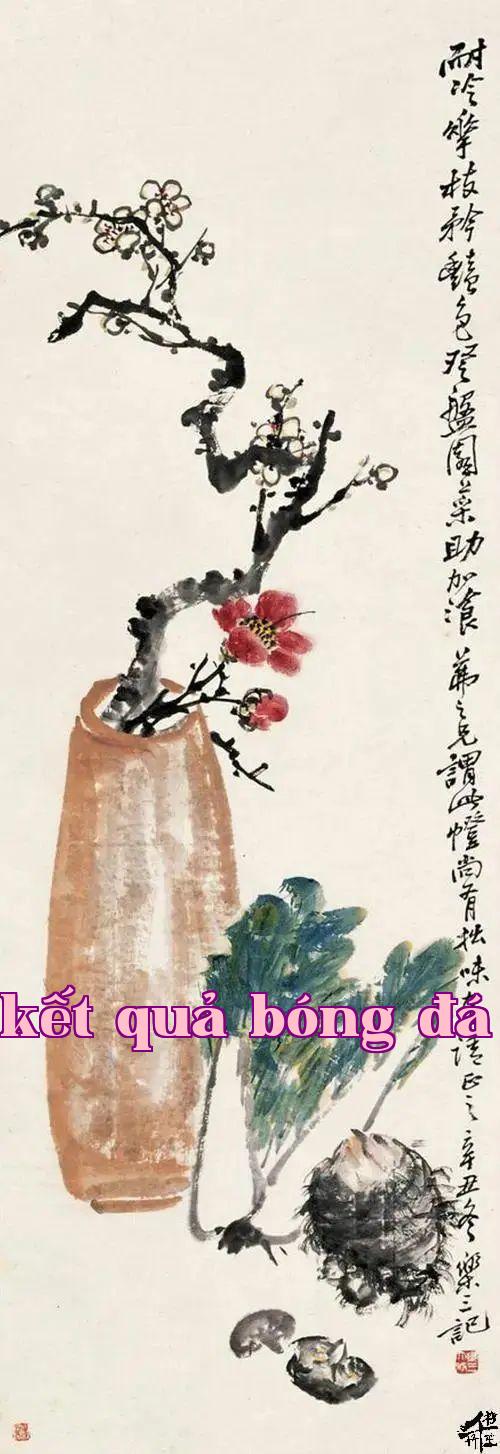 耐冷華枝矜豔色登盤園菜助加飡 茀之兄謂此幀尚有拙味 請正之 辛丑冬 樂三記
kết quả bóng đá